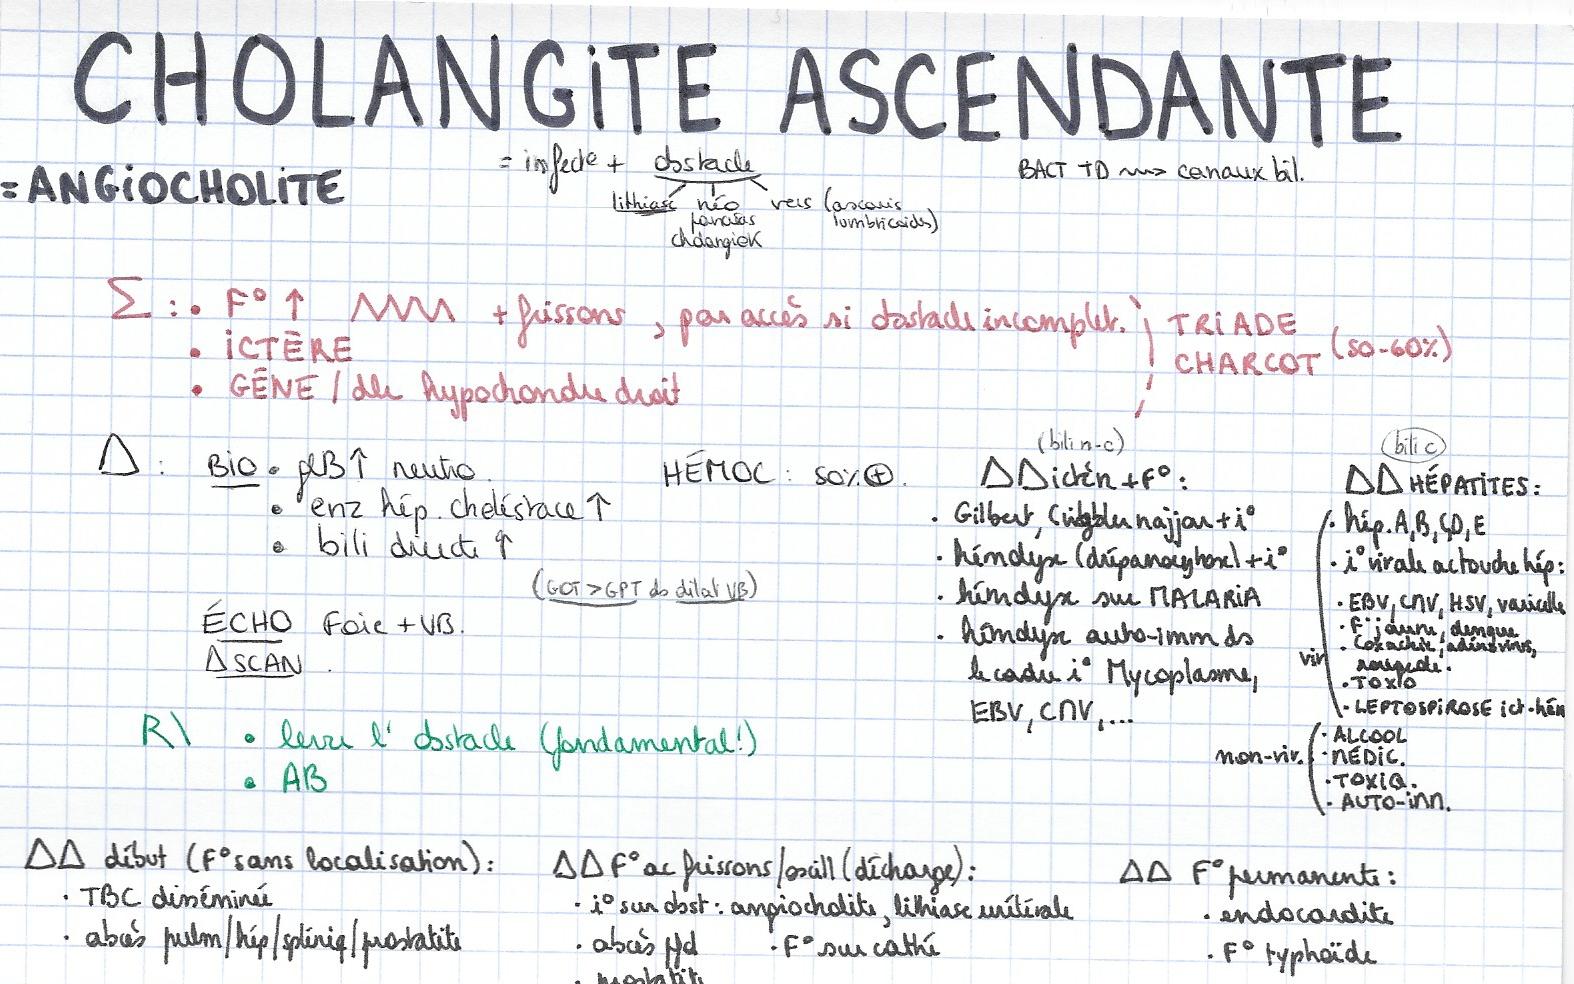 CHOLANGiTE ASCENDANTE
= ANGiOCHOLiTE
= infecte + obstacle
BACT TD ~~> canaux bil.
lithiase néo vers (ascaris lumbricoides)
pancréas
cholangioK
Σ : • F° ↑ + frissons, par accès si obstacle incomplet.
• iCTÈRE
• GÊNE / dlr hypochondre droit
TRiADE
CHARCOT (50-60%)
Δ : BiO • glB↑ neutro.
• enz hép. cholestase ↑
• bili directe ↑
HÉMOC : 50% ⊕.
(GOT > GPT ds dilat VB)
ÉCHO Foie + VB.
Δ SCAN.
R\ • lever l'obstacle (fondamental!)
• AB
(bili n-c)
ΔΔ ictère + F° :
• Gilbert, Crigler najjar + i°
• hémolyse (drépanocytose) + i°
• hémolyse sur MALARiA
• hémolyse auto-imm ds
le cadre i° Mycoplasme,
EBV, CMV, ...
bili c
ΔΔ HÉPATiTES :
• hép. A, B, C, D, E
• i° virale ac touche hép :
• EBV, CMV, HSV, varicelle
• F. jaune, dengue
• Coxackie, adénovirus,
rougeole.
vir
• TOXO
• LEPTOSPiROSE ict-hém
non-vir.
• ALCOOL
• MÉDiC.
• TOXiQ.
• AUTO-iMM.
ΔΔ début (F° sans localisation) :
• TBC disséminée
• abcès pulm/hép/spléniq/prostatite
ΔΔ F° ac frissons/oscill (décharge) :
• i° sur obst : angiocholite, lithiase urétérale
• abcès pfd • F° sur cathé
• prostatite
ΔΔ F° permanente :
• endocardite
• F° typhoïde